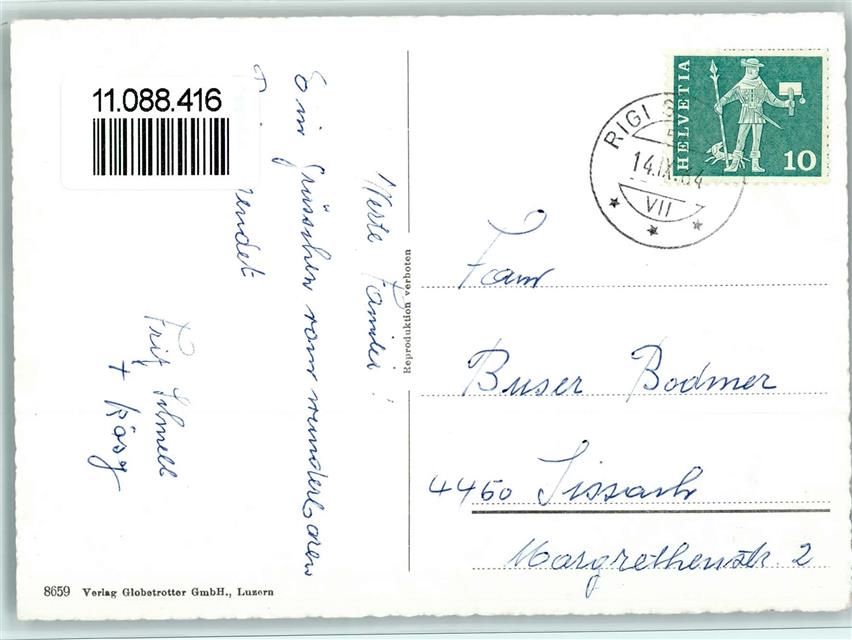 11.088.416
Werte Familie!
Ein Grüsschen vom wunderbaren
sendet
Fritz Schnell
+ Rösy
Reproduktion verboten
8659 Verlag Globetrotter GmbH., Luzern
HELVETIA
10
RIGI
14.IX.64
VII
Fam
Buser Bodmer
4450 Sissach
Margrethenstr. 2